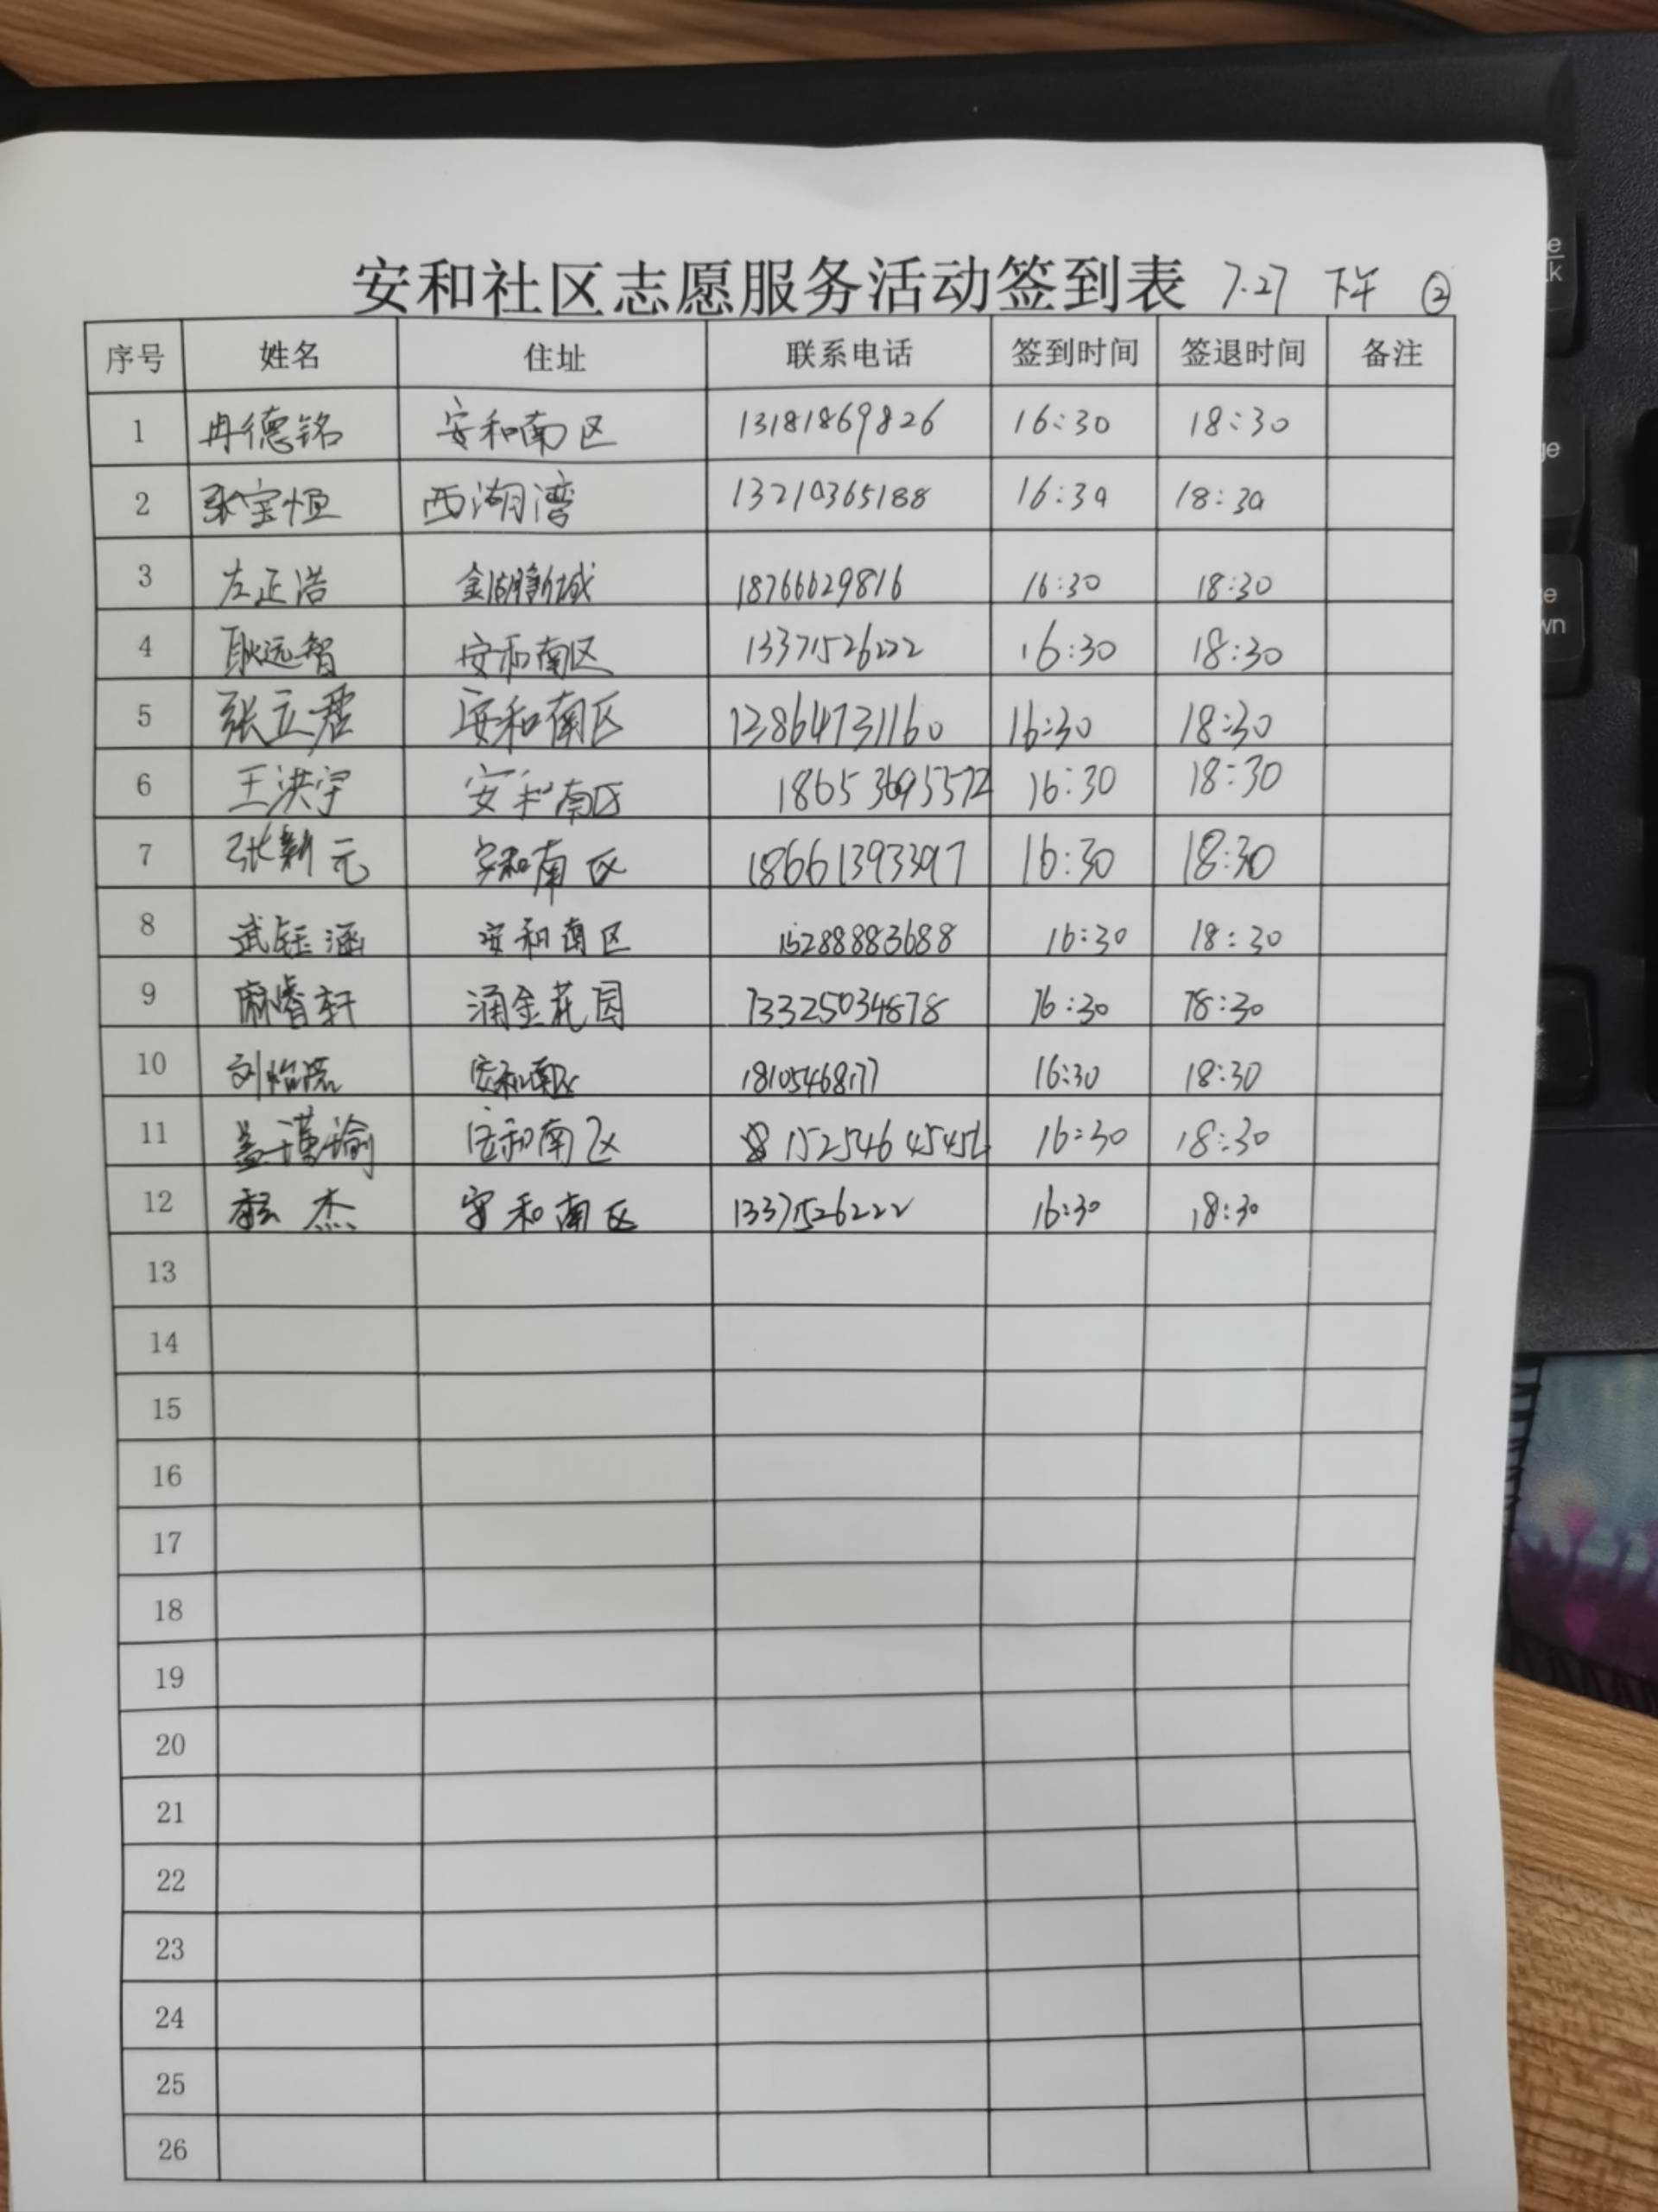 安和社区志愿服务活动签到表 7.27 下午 ②
序号 姓名 住址 联系电话 签到时间 签退时间 备注
1 冉德铭 安和南区 13181869826 16:30 18:30
2 张宝恒 西湖湾 13210365188 16:30 18:30
3 左正浩 金湖新城 18766629816 16:30 18:30
4 耿远智 安和南区 13371526222 16:30 18:30
5 张立君 安和南区 13864731160 16:30 18:30
6 王洪宇 安和南区 18653695572 16:30 18:30
7 张新元 安和南区 18661393397 16:30 18:30
8 武钰涵 安和南区 15288883688 16:30 18:30
9 麻睿轩 涌金花园 13325034878 16:30 18:30
10 刘怡 安和南区 16:30 18:30
11 盖瑾瑜 安和南区 16:30 18:30
12 程杰 安和南区 13371526222 16:30 18:30
13
14
15
16
17
18
19
20
21
22
23
24
25
26